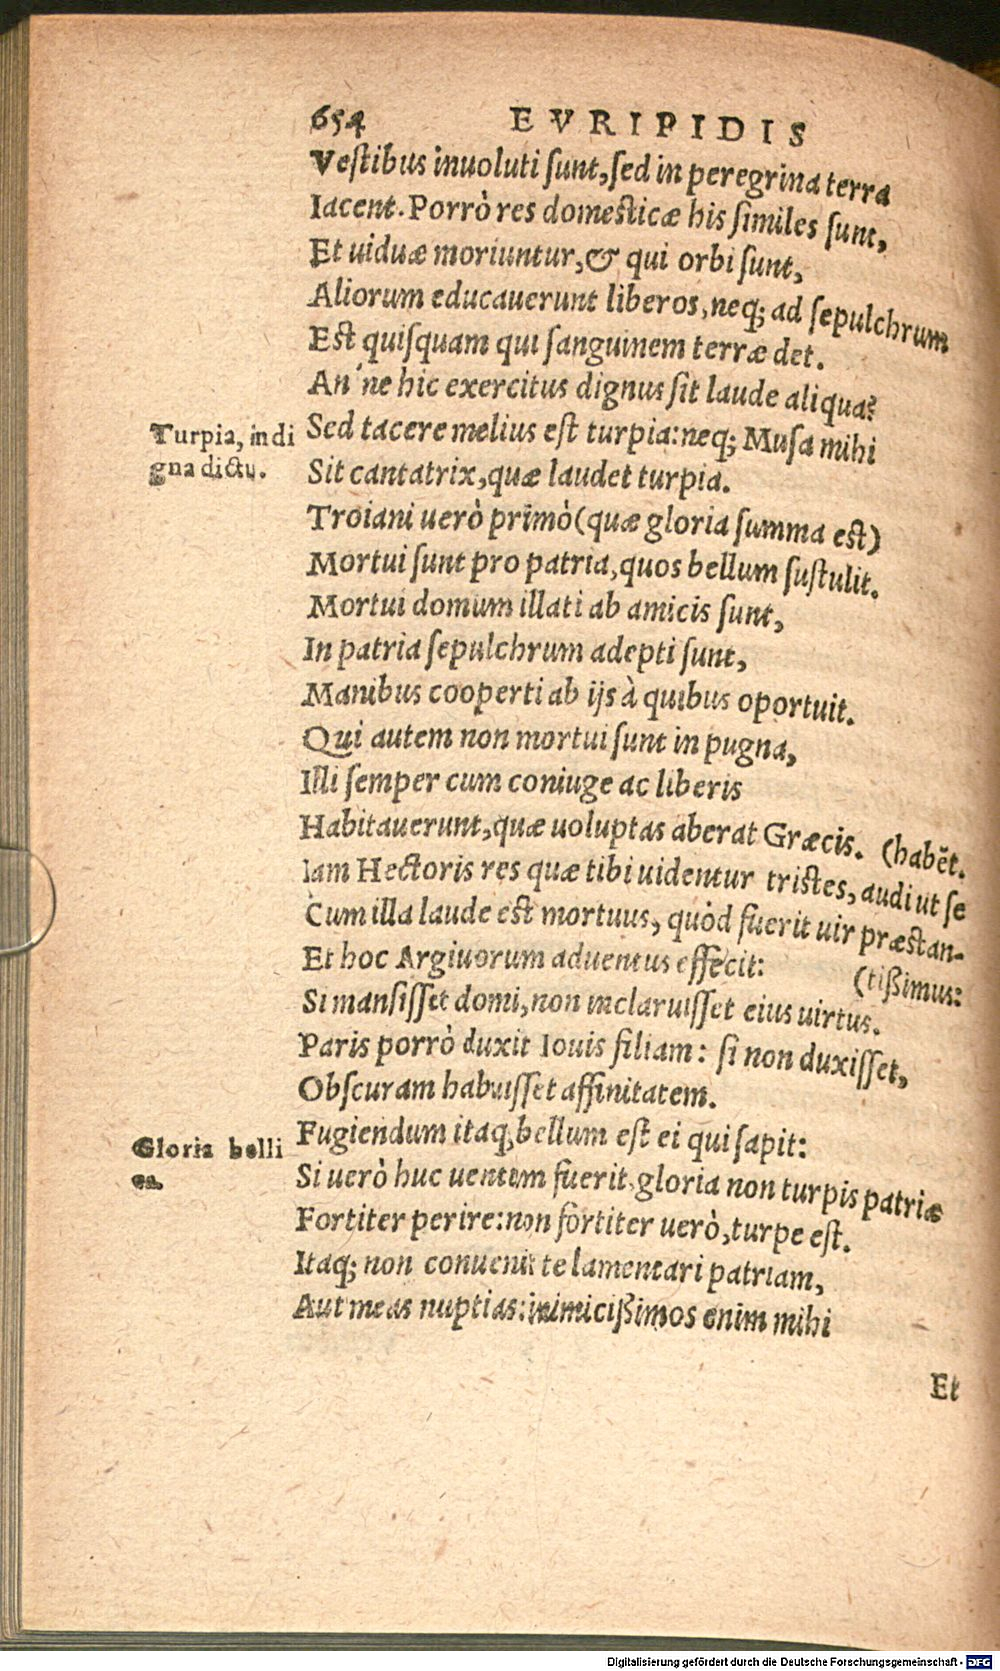 654 EVRIPIDIS
Veſtibus inuoluti ſunt, ſed in peregrina terra
Iacent. Porrò res domeſticæ his ſimiles ſunt,
Et uiduæ moriuntur, & qui orbi ſunt,
Aliorum educauerunt liberos, neq; ad ſepulchrum
Eſt quiſquam qui ſanguinem terræ det.
An'ne hic exercitus dignus ſit laude aliqua?
Turpia, indi
gna dictu.
Sed tacere melius eſt turpia: neq; Muſa mihi
Sit cantatrix, quæ laudet turpia.
Troiani uerò primò (quæ gloria ſumma eſt)
Mortui ſunt pro patria, quos bellum ſuſtulit.
Mortui domum illati ab amicis ſunt,
In patria ſepulchrum adepti ſunt,
Manibus cooperti ab ijs à quibus oportuit.
Qui autem non mortui ſunt in pugna,
Illi ſemper cum coniuge ac liberis
Habitauerunt, quæ uoluptas aberat Græcis. (habēt.
Iam Hectoris res quæ tibi uidentur triſtes, audi ut ſe
Cum illa laude eſt mortuus, quòd fuerit uir præſtan-
Et hoc Argiuorum aduentus effecit: (tißimus:
Si manſiſſet domi, non inclaruiſſet eius uirtus.
Paris porrò duxit Iouis filiam: ſi non duxiſſet,
Obſcuram habuiſſet affinitatem.
Gloria belli
ca.
Fugiendum itaq; bellum eſt ei qui ſapit:
Si uerò huc uentum fuerit, gloria non turpis patriæ
Fortiter perire: non fortiter uerò, turpe eſt.
Itaq; non conuenit te lamentari patriam,
Aut meas nuptias: inimicißimos enim mihi
Et
Digitalisierung gefördert durch die Deutsche Forschungsgemeinschaft - DFG